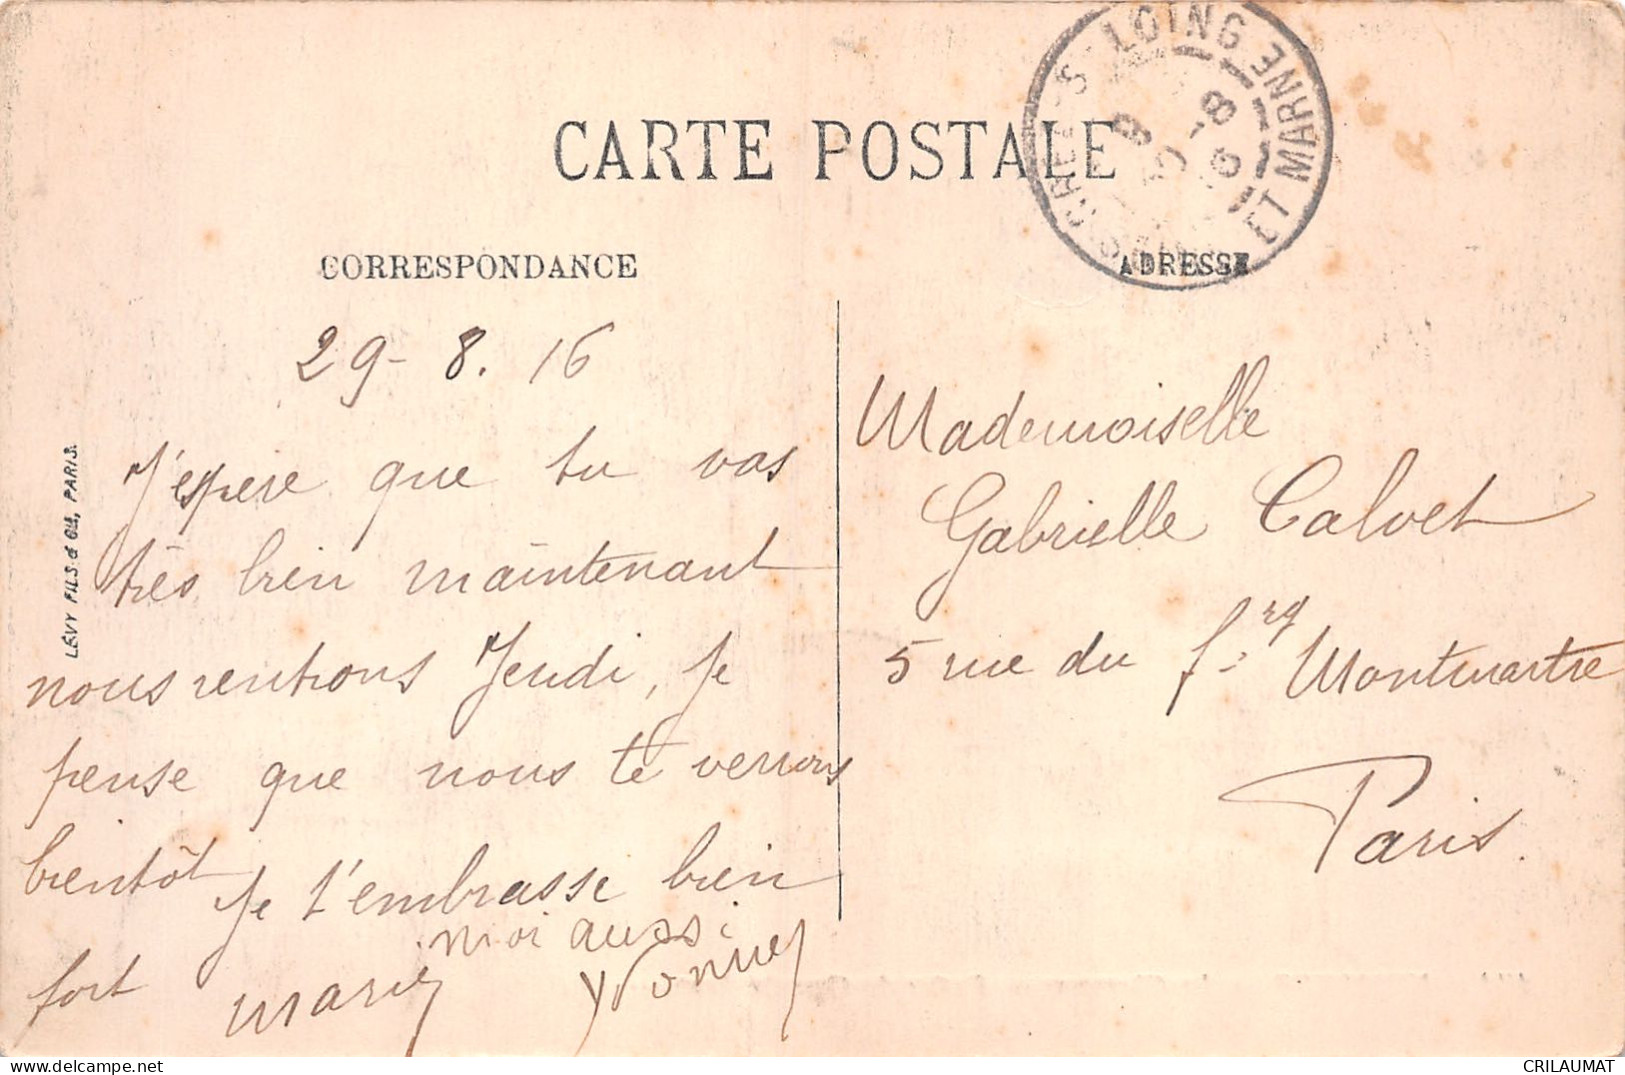 CARTE POSTALE
CORRESPONDANCE
ADRESSE
S LOING
ET MARNE
29-8.16
J'espere que tu vas
très bien maintenant
nous rentrons Jeudi, je
pense que nous te verrons
bientôt je t'embrasse bien
fort
moi aussi
Marie
Yvonne
Mademoiselle
Gabrielle Calvet
5 rue du f.rg Montmartre
Paris.
LÉVY FILS & Cie, PARIS.
CRILAUMAT